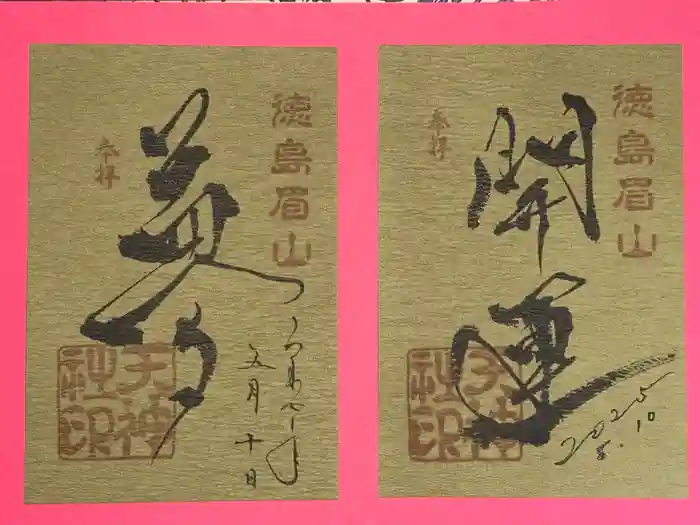 徳島眉山
夢
参拝
令和七年
五月十日
天神
社印
徳島眉山
開運
参拝
天神
社印
2025
5.10